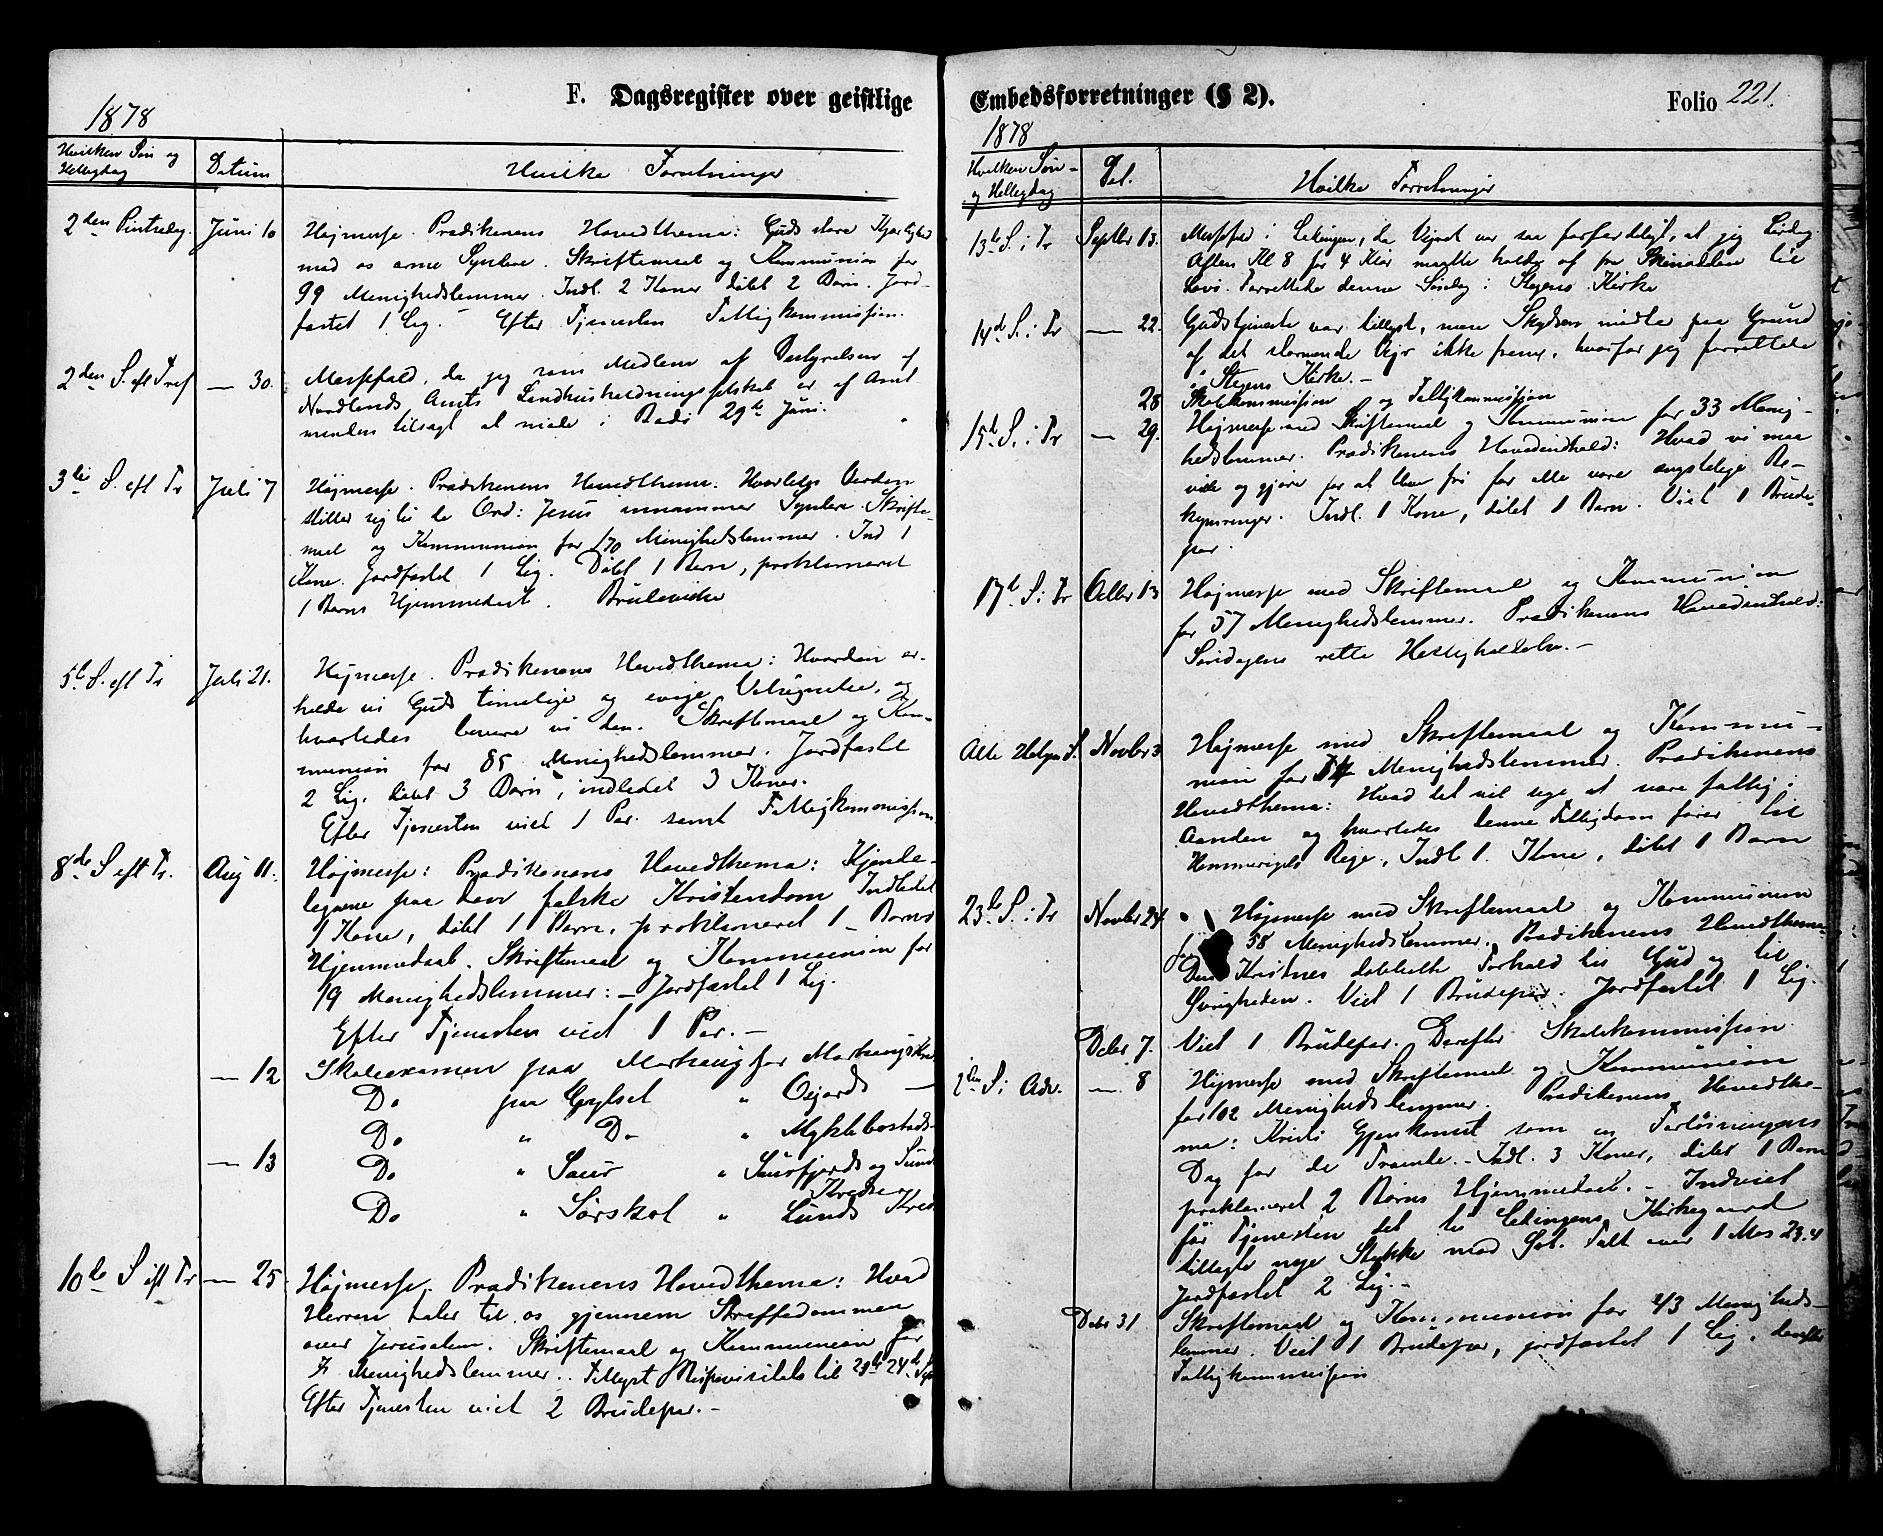 F. Dagsregister over geistlige
1878
Hvilken Søn og
Helligdag
Datum
Hvilke Forretninger
2den Pintsedag. Juni 10 Højmesse. Prædikenens Hovedthema: Guds store Kjærlighed
mod os arme Syndere. Skriftemaal og Kommunion for
99 Menighedslemmer. Indl. 2 Koner døbt 2 Børn. Jord-
fæstet 1 Lig. Efter Tjenesten Fattigkommission.
2den S. eft Tref — 30. Messefald, da jeg som Medlem af Bestyrelsen af
Nordlands Amts Landhusholdningsselskab er af Amt
manden tilsagt at møde i Bodø 29de Juni.
3die S. eft Tr Juli 7 Højmesse. Prædikenens Hovedthema. Hvorledes Verden
stiller sig til de Ord: Jesus annammer Syndere. Skrifte-
maal og Kommunion for 170 Menighedslemmer. Ind 1
Kone. Jordfæstet 1 Lig. Døbt 1 Barn, proklameret
1 Barns Hjemmedaab. Brudevielse
5te S. eft Tr Juli 21. Højmesse. Prædikenens Hovedthema: Hvordan er-
holde vi Guds timelige og evige Velsignelse, og
hvorledes bevare vi den. Skriftemaal og Kom-
munion for 85 Menighedslemmer. Jordfæstet
2 Lig. døbt 3 Børn, indledet 3 Koner.
Efter Tjenesten viet 1 Par. samt Fattigkommission
8de S eft Tr. Aug 11. Højmesse: Prædikenens Hovedthema: Kjende-
tegnene paa den falske Kristendom Indledet
1 Kone, døbt 1 Barn, proklameret 1 Barns
Hjemmedaab. Skriftemaal og Kommunion for
19 Menighedslemmer: — Jordfæstet 1 Lig.
Efter Tjenesten viet 1 Par. —
— 12 Skoleexamen paa Markaug for Markaugs Kred
Do paa Gylset " —
Do " Do " Myklebostads-
— 13 Do " Saur " Saurfjords og Sund
Kredse
Do " Sørskot " Lunds Kred
10de S eft Tr — 25 Højmesse. Prædikenens Hovedthema: Hvad
Herren taler til os gjennem Straffedommen
over Jerusalem. Skriftemaal og Kommunion for
Menighedslemmer. Tillyst Bispevisitats til 24de Sept
Efter Tjenesten viet 2 Brudepar. —
Embedsforretninger (§ 2).
Folio 221.
1878
Hvilken Søn-
og Helligdag
Dat.
Hvilke Forretninger
13de S. i Tr Septbr 15. Messefald i Ledingen, da Vejret var saa forfærdeligt, at jeg Lørdag
Aften Kl 8 for 4 Klør maatte holde af fra Skinaalden til
Løvø. Forrettede denne Søndag i Stegens Kirke
14d S. i Tr — 22. Gudstjeneste var tillyst, men Skydsen mødte paa Grund
af det stormende Vejr ikke frem, hvorfor jeg forrettede
i Stegens Kirke. —
28 Skolekommission og Fattigkommission
15d S. i Tr — 29. Højmesse med Skriftemaal og Kommunion for 33 Menig-
hedslemmer. Prædikenens Hovedindhold: Hvad vi maa
vide og gjøre for at blive fri for alle vore ængstelige Be-
kymringer. Indl. 1 Kone, døbt 1 Barn. Viet 1 Brude-
par.
17d S. i Tr Octbr 13 Højmesse med Skriftemaal og Kommunion
for 57 Menighedslemmer. Prædikenens Hovedindhold:
Søndagens rette Helligholdelse. —
Alle Helgens S. Novbr 3 Højmesse med Skriftemaal og Kommu-
nion for Menighedslemmer. Prædikenens
Hovedthema: Hvad det vil sige at være fattig i
Aanden og hvorledes denne Fattigdom fører til
Himmerigets Rige, Indl 1. Kone, døbt 1 Barn
23de S. i Tr Novbr 24. Højmesse med Skriftemaal og Kommunion
for 58 Menighedslemmer. Prædikenens Hovedthema
Den Kristnes dobbelte Forhold til Gud og til
Øvrigheden. Viet 1 Brudepar. Jordfæstet 1 Lig.
Decbr 7. Viet 1 Brudepar. Derefter Skolekommission
2den S. i Adv. — 8 Højmesse med Skriftemaal og Kommunion
for 102 Menighedslemmer. Prædikenens Hovedthe-
ma: Kristi Gjenkomst som en Forløsningens
Dag for de Fromme. — Indl. 3 Koner, døbt 1 Barn
proklameret 2 Børns Hjemmedaab. — Indviet
før Tjenesten det til Ledingens Kirkegaard
tillagte nye Stykke med Tale over 1 Mos 23.4
Jordfæstet 2 Lig. —
Decbr 31 Skriftemaal og Kommunion for 43 Menigheds-
lemmer. Viet 1 Brudepar, jordfæstet 1 Lig, derefter
Fattigkommission